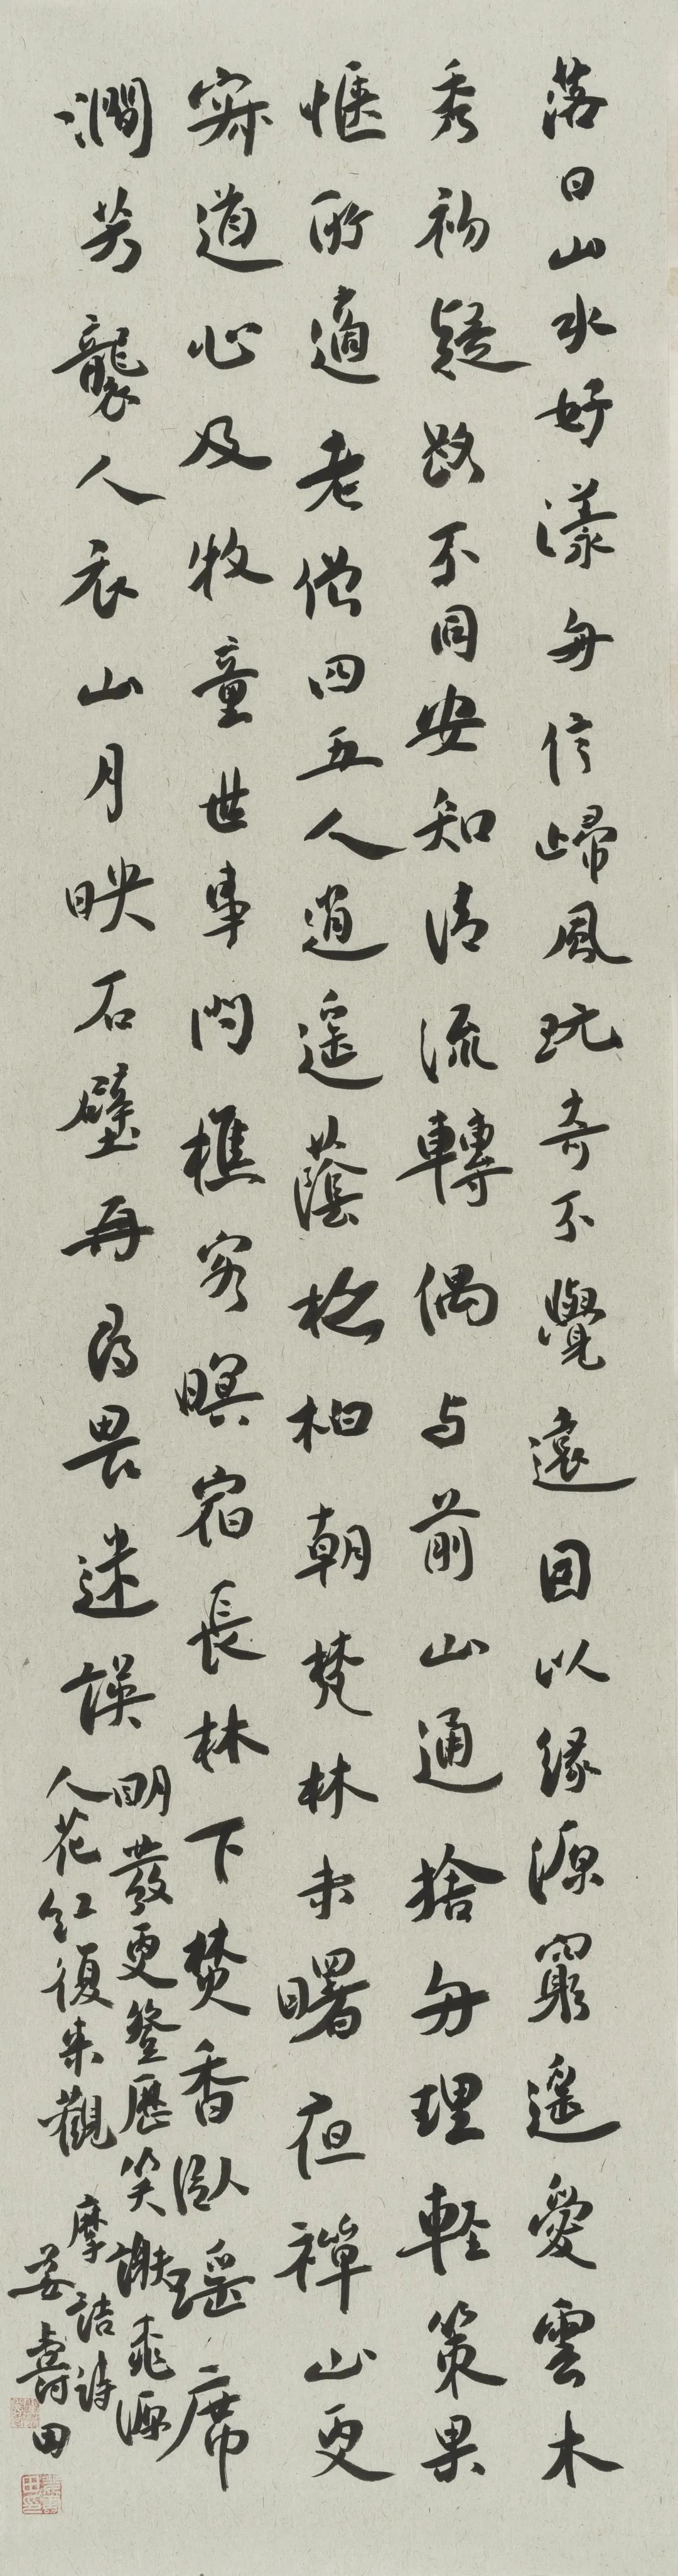 落日山水好漾舟信歸風玩奇不覺遠因以緣源窮遙愛雲木
秀初疑路不同安知清流轉偶与前山通捨舟理輕策果
愜所適老僧四五人逍遙蔭松柏朝梵林未曙夜禪山更
寂道心及牧童世事問樵客暝宿長林下焚香臥瑤席
澗芳襲人衣山月映石壁再尋畏迷誤
明發更登歷笑謝桃源
人花紅復來觀
摩詰詩
姜壽田